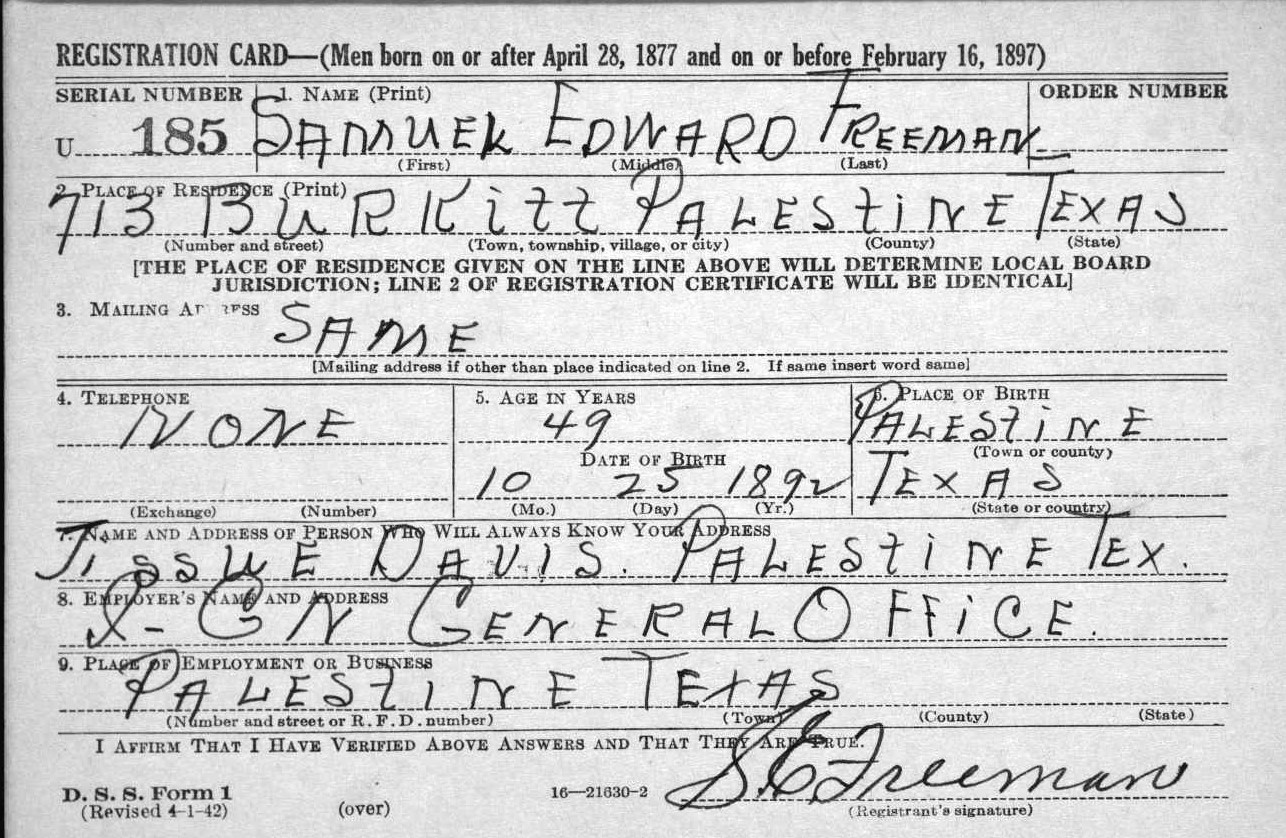 REGISTRATION CARD—(Men born on or after April 28, 1877 and on or before February 16, 1897)
SERIAL NUMBER 1. NAME (Print) ORDER NUMBER
U 185 SAMUEL EDWARD FREEMAN
(First) (Middle) (Last)
2. PLACE OF RESIDENCE (Print)
713 BURKiTT PALEStiNE TEXAS
(Number and street) (Town, township, village, or city) (County) (State)
[THE PLACE OF RESIDENCE GIVEN ON THE LINE ABOVE WILL DETERMINE LOCAL BOARD
JURISDICTION; LINE 2 OF REGISTRATION CERTIFICATE WILL BE IDENTICAL]
3. MAILING ADDRESS
SAME
[Mailing address if other than place indicated on line 2. If same insert word same]
4. TELEPHONE 5. AGE IN YEARS 6. PLACE OF BIRTH
NONE 49 PALEStiNE
DATE OF BIRTH (Town or county)
10 25 1892 TEXAS
(Exchange) (Number) (Mo.) (Day) (Yr.) (State or country)
7. NAME AND ADDRESS OF PERSON WHO WILL ALWAYS KNOW YOUR ADDRESS
TiSSUE DAVIS. PALEStiNE TEX.
8. EMPLOYER'S NAME AND ADDRESS
I-GN GENERAL OFFiCE.
9. PLACE OF EMPLOYMENT OR BUSINESS
PALEStiNE TEXAS
(Number and street or R. F. D. number) (Town) (County) (State)
I AFFIRM THAT I HAVE VERIFIED ABOVE ANSWERS AND THAT THEY ARE TRUE.
S. E. Freeman
D. S. S. Form 1
(Revised 4-1-42) (over) 16—21630-2 (Registrant's signature)